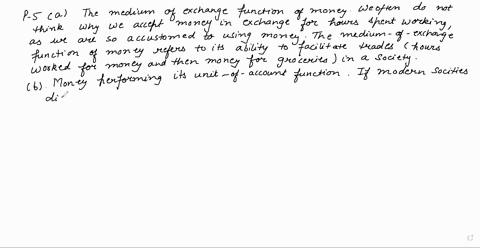 P-5 (a) The medium of exchange function of money. We often do not
think why we accept money in exchange for hours spent working,
as we are so accustomed to using money. The medium-of-exchage
function of money refers to its ability to facilitate trades (hours
worked for money and then money for groceries) in a society.
(b). Money performing its unit-of-account function. If modern socities
di